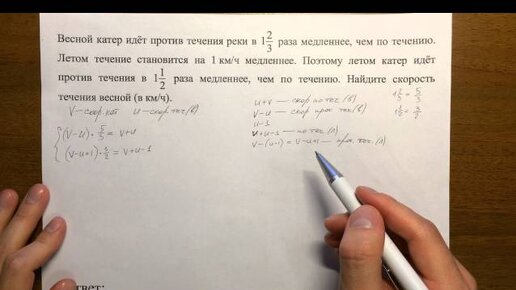 Весной катер идёт против течения реки в 1 2/3 раза медленнее, чем по течению.
Летом течение становится на 1 км/ч медленнее. Поэтому летом катер идёт
против течения в 1 1/2 раза медленнее, чем по течению. Найдите скорость
течения весной (в км/ч).
V — скор. кат U — скор. теч (в)
(V-U)·5/3 = V+U
(V-U+1)·3/2 = V+U-1
U+V — скор по теч (в)
V-U — скор прот. теч (в)
U-1
V+U-1 — по теч (л)
V-(U-1) = V-U+1 — прот. теч. (л)
1 2/3 = 5/3
1 1/2 = 3/2